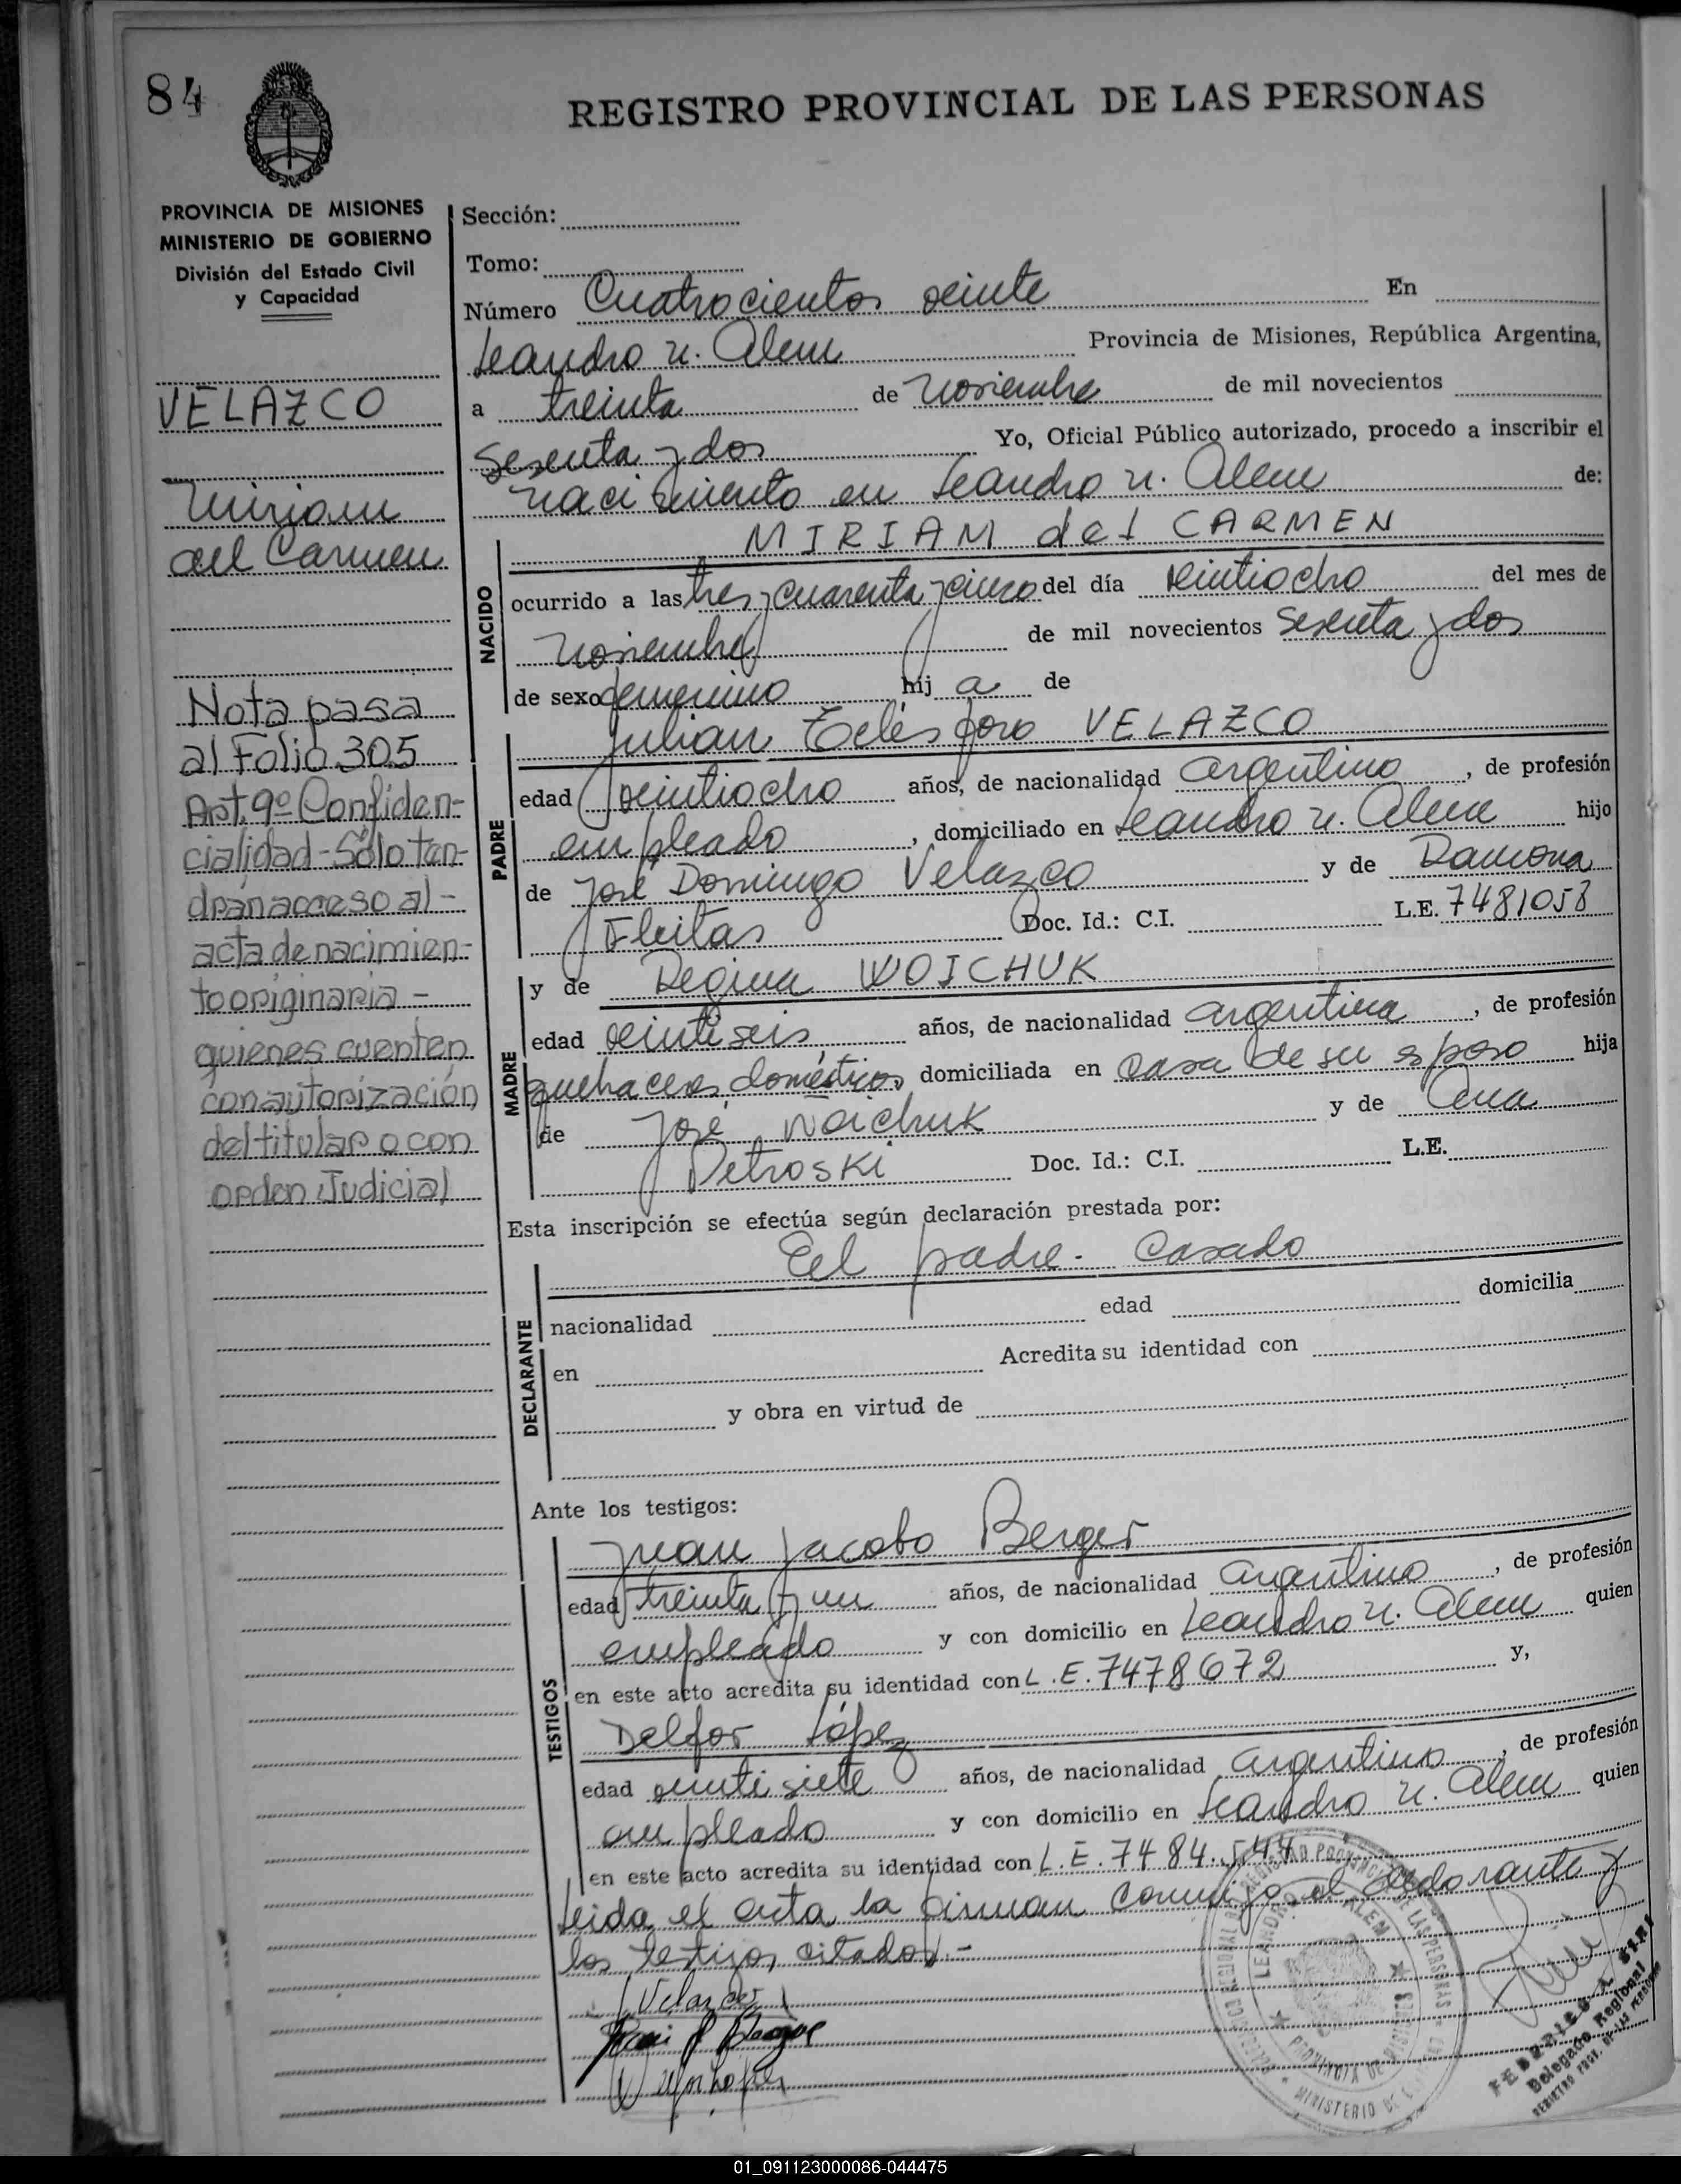 84
REGISTRO PROVINCIAL DE LAS PERSONAS
PROVINCIA DE MISIONES
MINISTERIO DE GOBIERNO
División del Estado Civil
y Capacidad
VELAZCO
Miriam
del Carmen
Nota pasa
al Folio 305
Art. 9º Confiden-
cialidad - Sólo ten-
drán acceso al -
acta de nacimien-
to originaria -
quienes cuenten
con autorización
del titular o con
orden Judicial
Sección:
Tomo:
Número Cuatrocientos veinte En
Leandro N. Alem Provincia de Misiones, República Argentina,
a treinta de Noviembre de mil novecientos
sesenta y dos Yo, Oficial Público autorizado, procedo a inscribir el
nacimiento en Leandro N. Alem de:
MIRIAM del CARMEN
NACIDO
ocurrido a las tres y cuarenta y cinco del día veintiocho del mes de
Noviembre de mil novecientos sesenta y dos
de sexo femenino hij a de
Julian Telésforo VELAZCO
PADRE
edad veintiocho años, de nacionalidad argentino, de profesión
empleado, domiciliado en Leandro N. Alem hijo
de José Domingo Velazco y de Ramona
Fleitas Doc. Id.: C.I. L.E. 7481053
y de Regina WOICHUK
MADRE
edad veintiseis años, de nacionalidad argentina, de profesión
quehaceres domésticos domiciliada en casa de su esposo hija
de José Woichuk y de Ana
Petroski Doc. Id.: C.I. L.E.
Esta inscripción se efectúa según declaración prestada por:
El padre. Casado
DECLARANTE
nacionalidad edad domicilia
en Acredita su identidad con
y obra en virtud de
Ante los testigos:
TESTIGOS
Juan Jacobo Berger
edad treinta y un años, de nacionalidad argentino, de profesión
empleado y con domicilio en Leandro N. Alem quien
en este acto acredita su identidad con L.E. 7478672 y,
Delfor López
edad veintisiete años, de nacionalidad argentino, de profesión
empleado y con domicilio en Leandro N. Alem quien
en este acto acredita su identidad con L.E. 7484.544
Leida el acta, la firman conmigo el declarante y
los testigos citados.-
Velazco
LEANDRO N. ALEM
PROVINCIA DE MISIONES
Delegado Regional
01_091123000086-044475